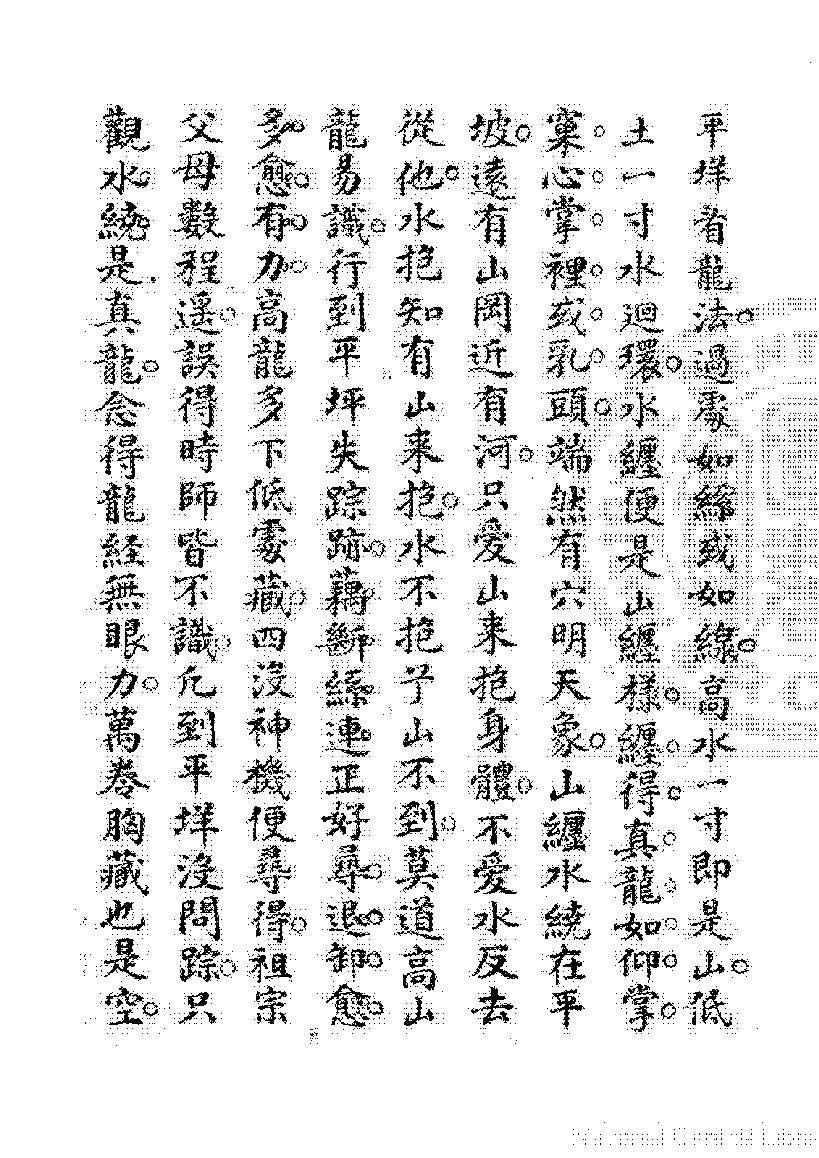 平垟看龍法過處如絲或如線高水一寸即是山低
土一寸水迴環水纏便是山纏樣纏得真龍如仰掌
窠心掌裡或乳頭端然有穴明天象山纏水繞在平
坡遠有山岡近有河只愛山来抱身體不愛水反去
從他水抱知有山来抱水不抱兮山不到莫道高山
龍易識行到平坪失踪跡藕斷絲連正好尋退卸愈
多愈有力高龍多下低處藏四沒神機便尋得祖宗
父母數程遥誤得時師皆不識凢到平垟沒問踪只
觀水繞是真龍念得龍経無眼力萬巻胸藏也是空
National Central Library